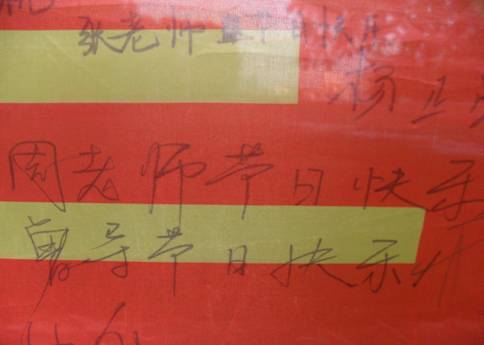 张老师节日快乐
杨卫
周老师节日快乐
曾导节日快乐